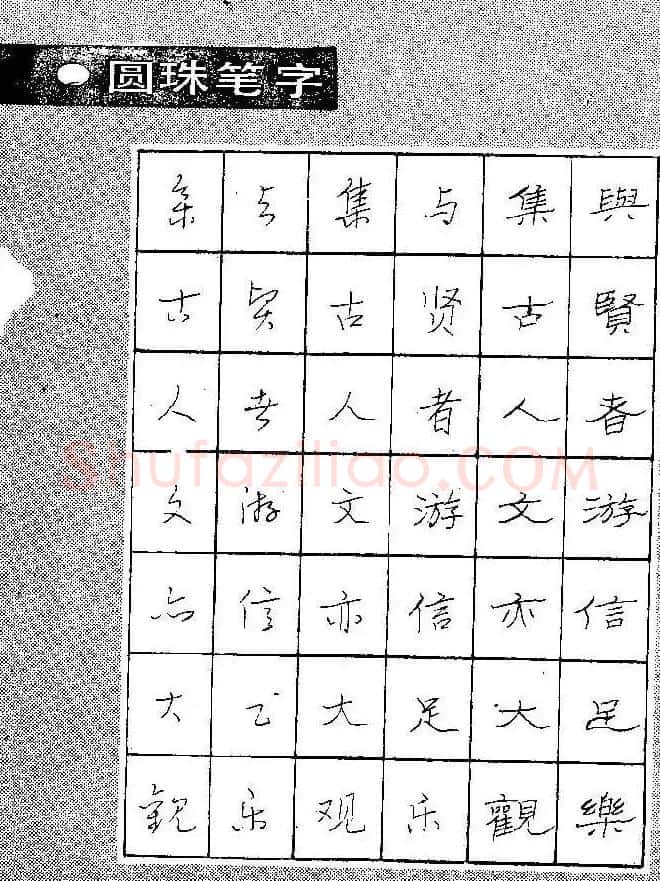 圆珠笔字
與賢者游信足樂
集古人文亦大觀
与贤者游信足乐
集古人文亦大观
与贤者游信足乐
集古人文亦大観
Shufaziliao.COM